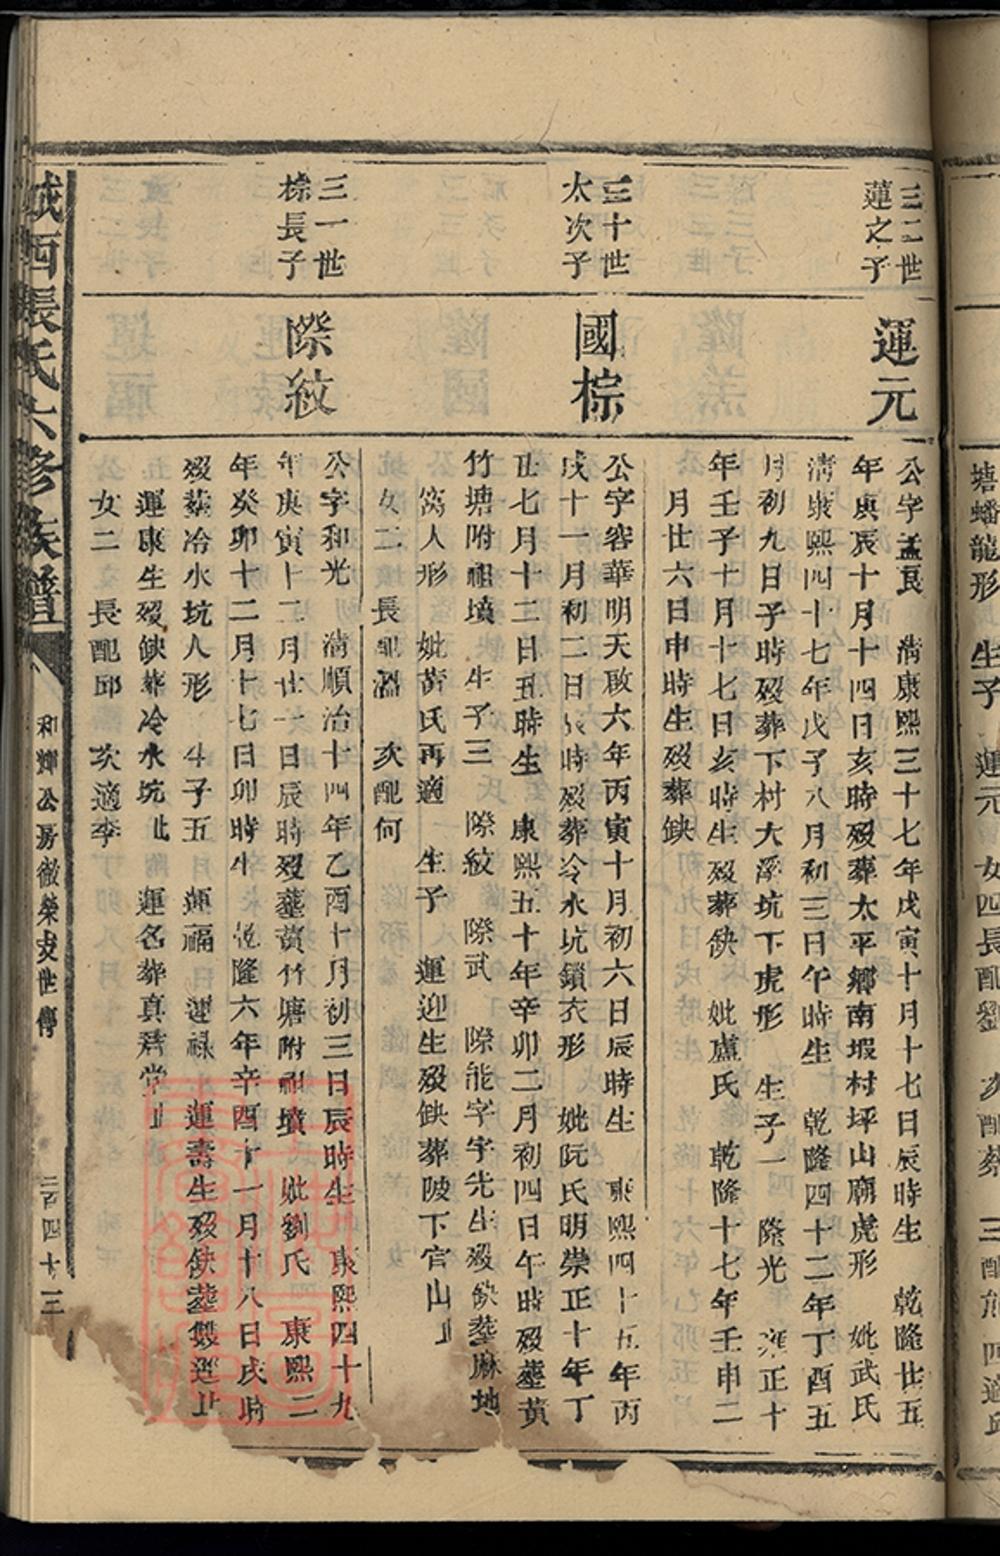 塘蟠龍形　生子　運元　女四長配劉
三二世
蓮之子
運元
公字孟良　淸康熙三十七年戊寅十月十七日辰時生　乾隆廿五
年庚辰十月十四日亥時歿葬太平鄉南塅村坪山廟虎形　妣武氏
淸康熙四十七年戊子八月初三日午時生　乾隆四十二年丁酉五
月初九日子時歿葬下村大溪坑下虎形　生子一　隆光　雍正十
年壬子十月十七日亥時生歿葬缺　妣盧氏　乾隆十七年壬申二
月廿六日申時生歿葬缺
三十世
太次子
國棕
公字容華明天啟六年丙寅十月初六日辰時生　康熙四十五年丙
戌十一月初二日辰時歿葬冷水坑鎖衣形　妣阮氏明崇正十年丁
丑七月十三日丑時生　康熙五十年辛卯二月初四日午時歿塟黃
竹塘附祖墳　生子三　際紋　際武　際能字宇光生歿缺塟麻地
窩人形　妣黃氏再適　生子　運迎生歿缺葬陂下官山
女二　長配溫　次配何
三一世
棕長子
際紋
公字和光　淸順治十四年乙酉十月初三日辰時生　康熙四十九
年庚寅十二月廿一日辰時歿塟黃竹塘附祖墳　妣劉氏　康熙二
年癸卯十二月十七日卯時生　乾隆六年辛酉十一月十八日戌時
歿葬冷水坑人形　生子五　運福　運祿　運壽生歿缺塟
運康生歿缺葬冷水坑　運名葬真濟堂
女二　長配邱　次適李
城西張氏六修族譜
和輝公房徵榮支世傳
三百四十三